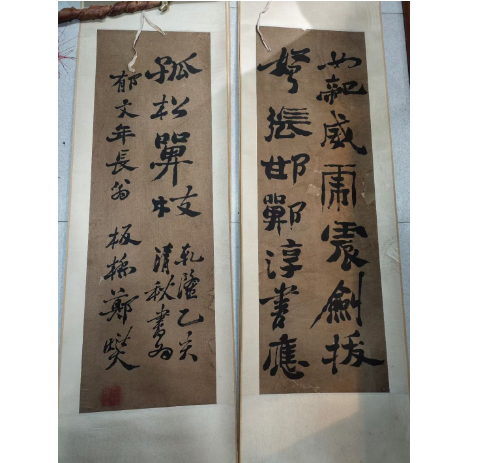 如龍威虎震劍拔
弩張邯鄲淳書應
孤松單枝
乾隆乙亥
清秋書為
郁文年長翁 板橋鄭燮